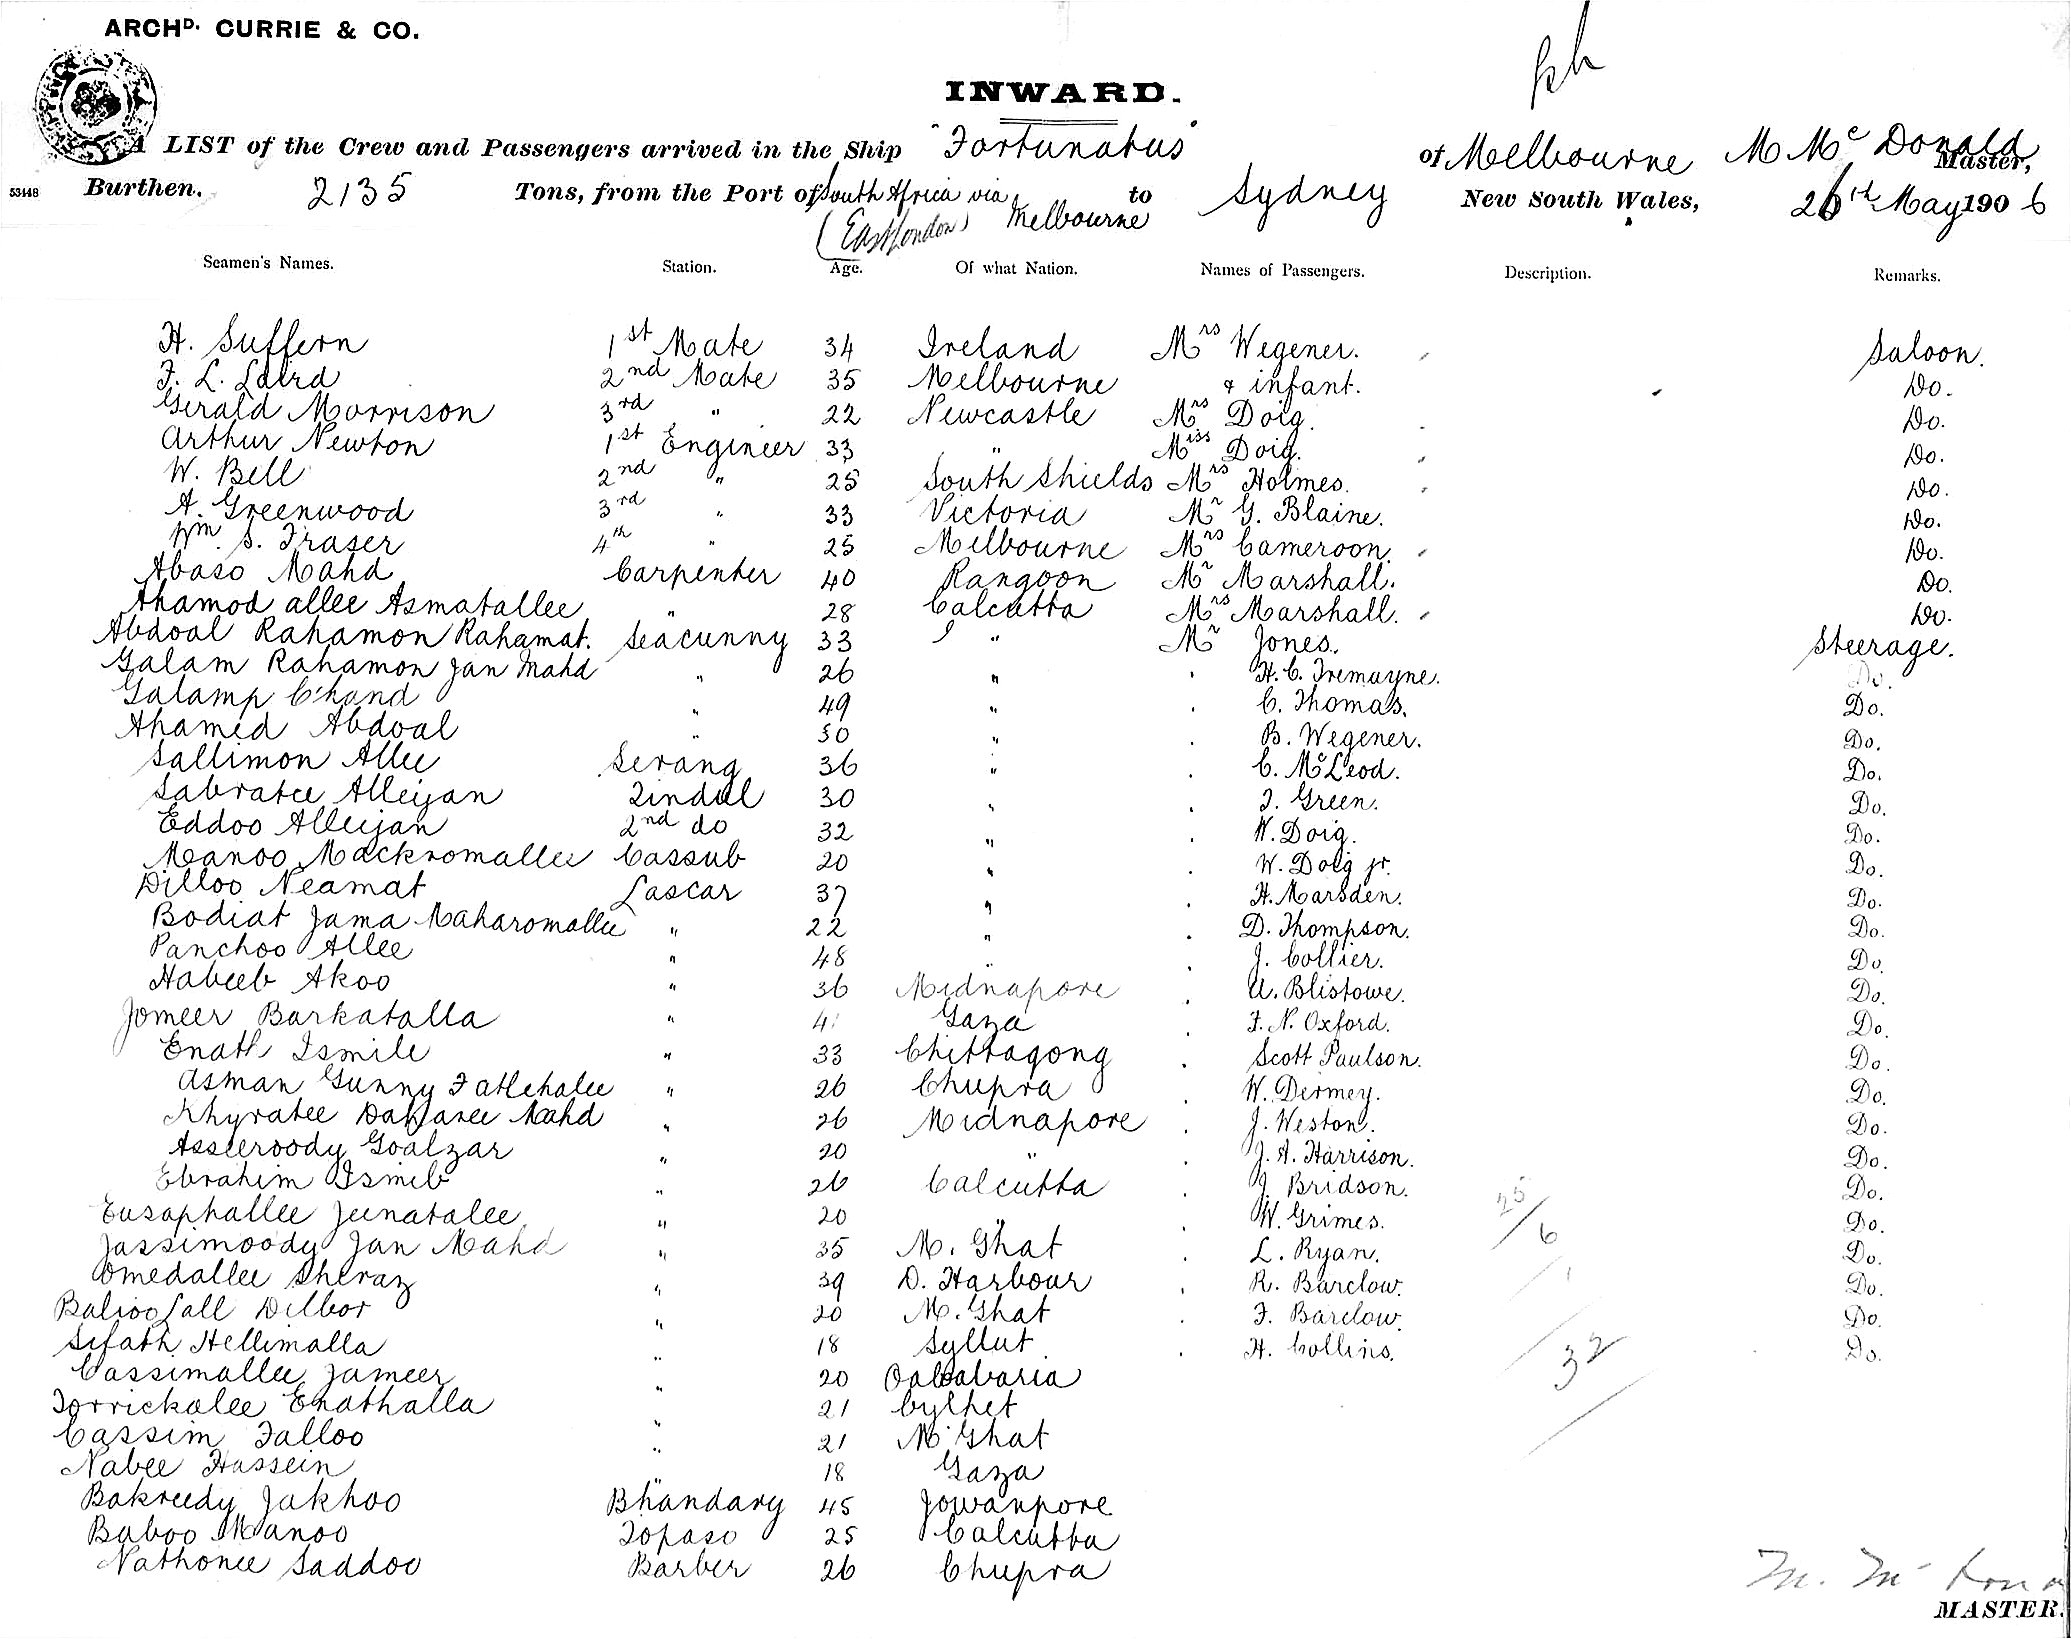 ARCHD. CURRIE & CO.
INWARD.
A LIST of the Crew and Passengers arrived in the Ship "Fortunatus" of Melbourne M Mc Donald Master,
53448 Burthen. 2135 Tons, from the Port of South Africa via Melbourne to Sydney New South Wales, 26th May 1906
(East London)
Seamen's Names. Station. Age. Of what Nation. Names of Passengers. Description. Remarks.
H. Suffern 1st Mate 34 Ireland Mrs Wegener. Saloon.
F. L. Laird 2nd Mate 35 Melbourne & infant. Do.
Gerald Morrison 3rd " 22 Newcastle Mrs Doig. Do.
Arthur Newton 1st Engineer 33 " Miss Doig. Do.
W. Bell 2nd " 25 South Shields Mrs Holmes. Do.
A. Greenwood 3rd " 33 Victoria Mr G. Blaine. Do.
Wm. S. Fraser 4th " 25 Melbourne Mrs Cameroon. Do.
Abaso Mahd Carpenter 40 Rangoon Mr Marshall. Do.
Ahamod allee Asmatallee " 28 Calcutta Mrs Marshall. Do.
Abdoal Rahamon Rahamat. Seacunny 33 " Mr Jones. Steerage.
Galam Rahamon Jan Mahd " 26 " H. C. Tremayne. Do.
Galamp Chand " 49 " C. Thomas. Do.
Ahamed Abdoal " 50 " B. Wegener. Do.
Sallimon Allee Serang 36 " C. McLeod. Do.
Sabratee Alleijan Tindal 30 " J. Green. Do.
Eddoo Alleijan 2nd do 32 " W. Doig. Do.
Manoo Mackromallee Cassub 20 " W. Doig jr. Do.
Dilloo Neamat Lascar 37 " H. Marsden. Do.
Bodiat Jama Maharomallee " 22 " D. Thompson. Do.
Panchoo Allee " 48 " J. Collier. Do.
Habeeb Akoo " 36 Midnapore A. Blistowe. Do.
Jomeer Barkatalla " 41 Gaza F. N. Oxford. Do.
Enath Ismile " 33 Chittagong Scott Paulson. Do.
Asman Gunny Fatlehalee " 26 Chupra W. Dermey. Do.
Khyratee Mahd " 26 Midnapore J. Weston. Do.
Asseeroody Goalzar " 20 " J. A. Harrison. Do.
Ebrahim Ismile " 26 Calcutta J. Bridson. Do.
Eusaphallee Jeenatalee " 20 " W. Grimes. Do.
Jassimoody Jan Mahd " 35 M. Ghat L. Ryan. Do.
Omedallee Sheraz " 39 D. Harbour R. Barclow. Do.
Balioo Lall Dilbor " 20 M. Ghat F. Barclow. Do.
Sifath Hellimalla " 18 Syllut H. Collins. Do.
Cassimallee Jameer " 20
Torrickalee Enathalla " 21 Cylhet
Cassim Falloo " 21 M. Ghat
Nabee Hussein " 18 Gaza
Bakreedy Jakhoo Bhandary 45 Jowanpore
Baboo Manoo Topaso 25 Calcutta
Nathonee Saddoo Barber 26 Chupra
25/6
1
32
MASTER.